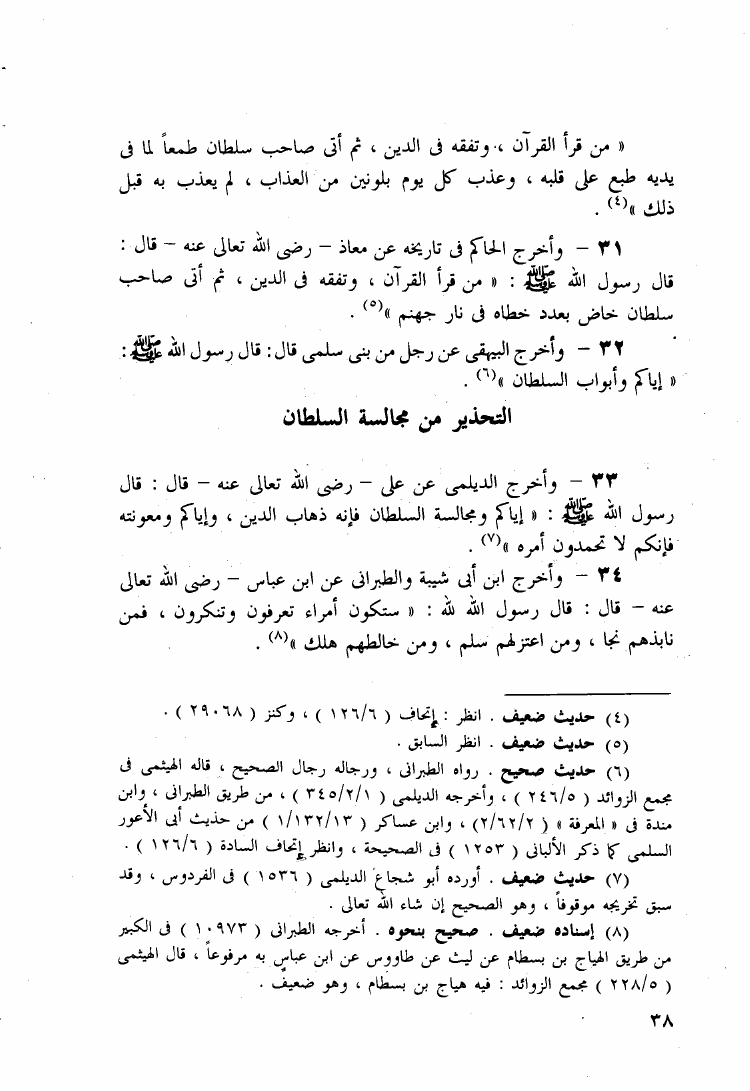 « من قرأ القرآن ، وتفقه فى الدين ، ثم أتى صاحب سلطان طمعاً لما فى
يديه طبع على قلبه ، وعذب كل يوم بلونين من العذاب ، لم يعذب به قبل
ذلك »(٤) .
٣١ – وأخرج الحاكم فى تاريخه عن معاذ – رضى الله تعالى عنه – قال :
قال رسول الله ﷺ : « من قرأ القرآن ، وتفقه فى الدين ، ثم أتى صاحب
سلطان خاض بعدد خطاه فى نار جهنم »(٥) .
٣٢ – وأخرج البيهقى عن رجل من بنى سلمى قال : قال رسول الله ﷺ :
« إياكم وأبواب السلطان »(٦) .
التحذير من مجالسة السلطان
٣٣ – وأخرج الديلمى عن على – رضى الله تعالى عنه – قال : قال
رسول الله ﷺ : « إياكم ومجالسة السلطان فإنه ذهاب الدين ، وإياكم ومعونته
فإنكم لا تحمدون أمره »(٧) .
٣٤ – وأخرج ابن أبى شيبة والطبرانى عن ابن عباس – رضى الله تعالى
عنه – قال : قال رسول الله لله : « ستكون أمراء تعرفون وتنكرون ، فمن
نابذهم نجا ، ومن اعتزلهم سلم ، ومن خالطهم هلك »(٨) .
(٤) حديث ضعيف . انظر : إتحاف ( ١٢٦/٦ ) ، وكنز ( ٢٩٠٦٨ ) .
(٥) حديث ضعيف . انظر السابق .
(٦) حديث صحيح . رواه الطبرانى ، ورجاله رجال الصحيح ، قاله الهيثمى فى
مجمع الزوائد ( ٢٤٦/٥ ) ، وأخرجه الديلمى ( ٣٤٥/٢/١ ) ، من طريق الطبرانى ، وابن
مندة فى « المعرفة » ( ٢/٦٢/٢ ) ، وابن عساكر ( ١/١٣٢/١٣ ) من حديث أبى الأعور
السلمى كما ذكر الألبانى ( ١٢٥٣ ) فى الصحيحة ، وانظر إتحاف السادة ( ١٢٦/٦ ) .
(٧) حديث ضعيف . أورده أبو شجاع الديلمى ( ١٥٣٦ ) فى الفردوس ، وقد
سبق تخريجه موقوفاً ، وهو الصحيح إن شاء الله تعالى .
(٨) إسناده ضعيف . صحيح بنحوه . أخرجه الطبرانى ( ١٠٩٧٣ ) فى الكبير
من طريق الهياج بن بسطام عن ليث عن طاووس عن ابن عباس به مرفوعاً ، قال الهيثمى
( ٢٢٨/٥ ) مجمع الزوائد : فيه هياج بن بسطام ، وهو ضعيف .
٣٨